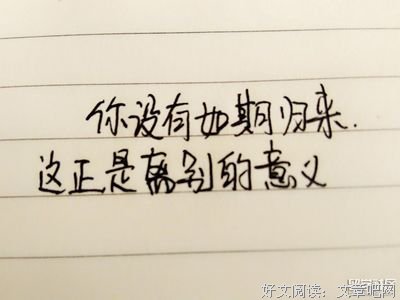 你没有如期归来.
这正是离别的意义
好文阅读：文章吧网